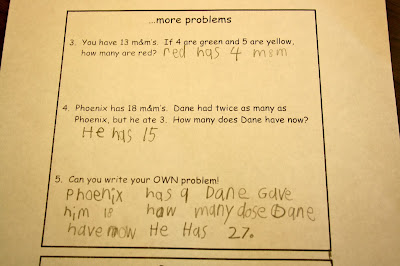 ...more problems
3. You have 13 m&m's. If 4 are green and 5 are yellow,
how many are red? red has 4 m&m
4. Phoenix has 18 m&m's. Dane had twice as many as
Phoenix, but he ate 3. How many does Dane have now?
He has 15
5. Can you write your OWN problem!
Phoenix has 9 Dane Gave
him 18 haw many dose Dane
have now He Has 27.